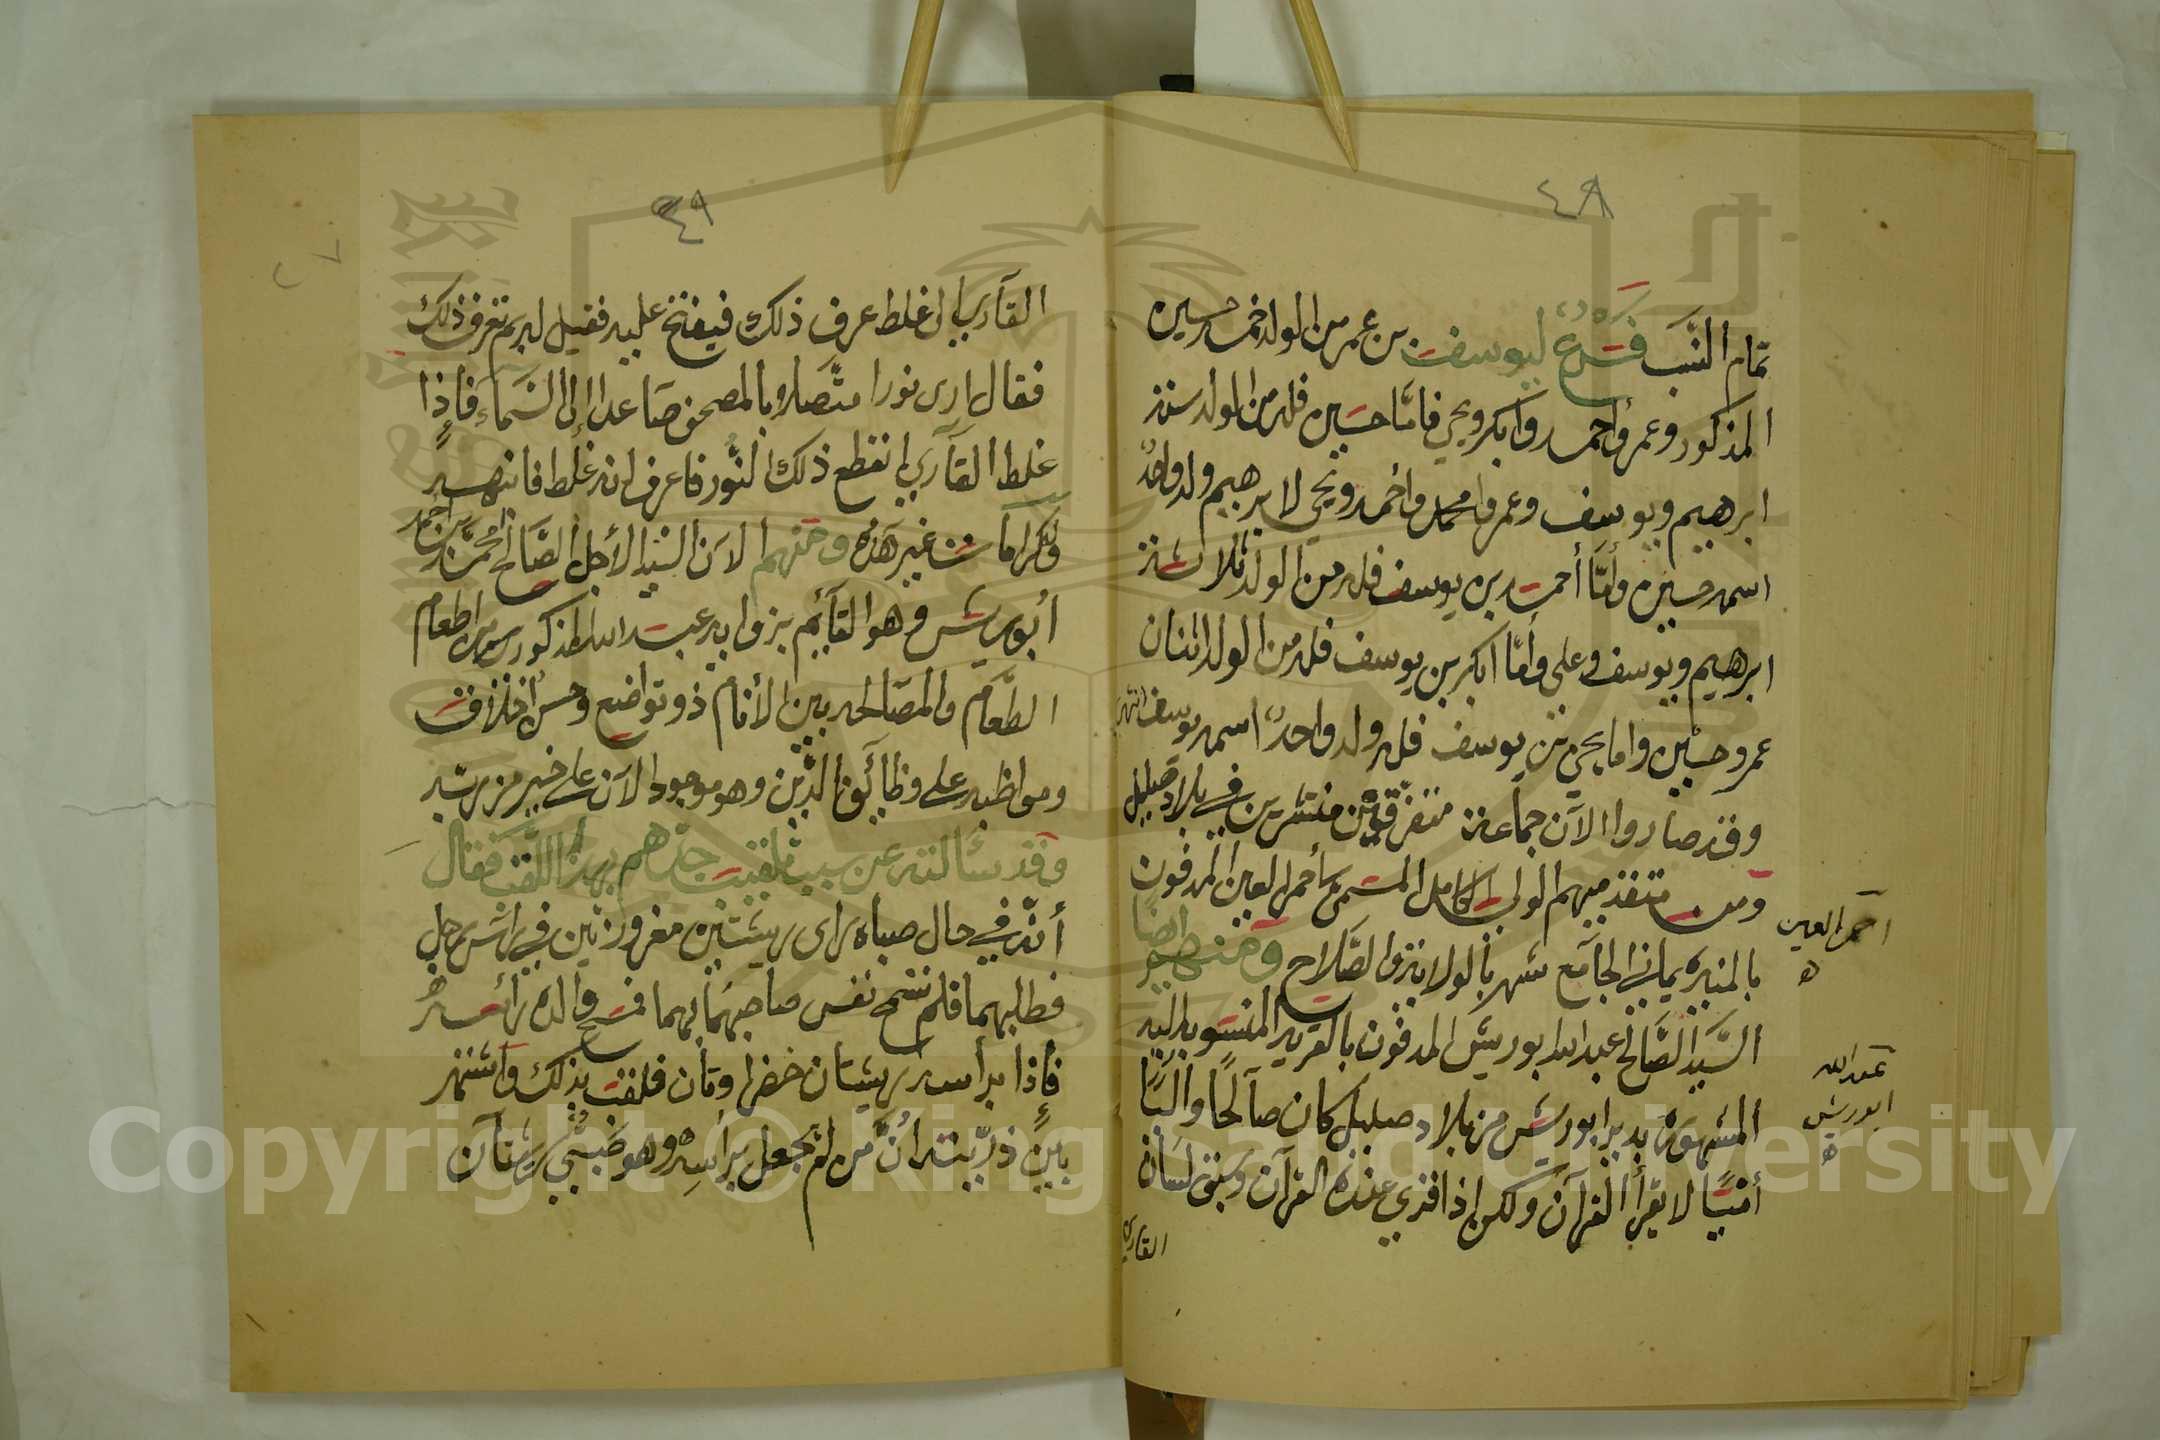 ٤٨
تمام النسب فرع ليوسف بن عمر من الولد خمسه حسين
المذكور وعمر وأحمد وابكر ويحي فامّا حسين فله من الولد ستة
ابرهيم ويوسف وعمر ومحمد وأحمد ويحي لابرهيم ولد واحدٌ
اسمه حسين وأمّا أحمد بن يوسف فله من الولد ثلاثة
ابرهيم ويوسف وعلي وأمّا ابكر بن يوسف فله من الولد اثنان
عمر وحسين واما يحي بن يوسف فله ولد واحدٌ اسمه يوسف انتهى
وقد صاروا الآن جماعة متفرقين منتشرين في بلاد صليل
ومن متقدميهم الولي الكامل المسمى بأحمر العين المدفون
بالمنيره يماني الجامع شهر بالولاية والصلاح ومنهم ايضًا
السيد الصالح عبد الله ابوريش المدفون بالقرية المنسوبة اليه
المشهورة بدير ابوريش من بلاد صليل كان صالحًا وليًا
أمّيًا لا يقرأ القرآن ولكن إذا قري عنده القرآن وسبق لسان
القاري
احمر العين
عبد الله
ابوريش
٤٩
القاري إلى غلط عرف ذلك فيفتح عليه فقيل له بم تعرف ذلك
فقال ارى نورا متّصلا بالمصحف صاعدا إلى السماء فإذا
غلط القاري انقطع ذلك النور فاعرف انه غلط فانتهره
وله كرامات غير هذه ومنهم الآن السيد الأجل الصالح محمد بن احمد
أبوريش وهو القائم بزواية عبد الله المذكور من اطعام
الطعام والمصالحه بين الأنام ذو تواضع وحسن اخلاق
ومواظبه على وظائف الدين وهو موجود الآن على خير مزيد
وقد سألته عن سبب تلقيب جدهم بهذا اللقب فقال
أنه في حال صباه راى ريشتين مغروزتين في رأس رجل
فطلبهما فلم تسمح نفس صاحبهما بهما فمسح والده رأسه
فإذا برأسه ريشتان خضراوتان فلقب بذلك واشتهر
بين ذريته أنّ من لم يجعل برأسه وهو صبي ريشتان
Copyright © King Saud University